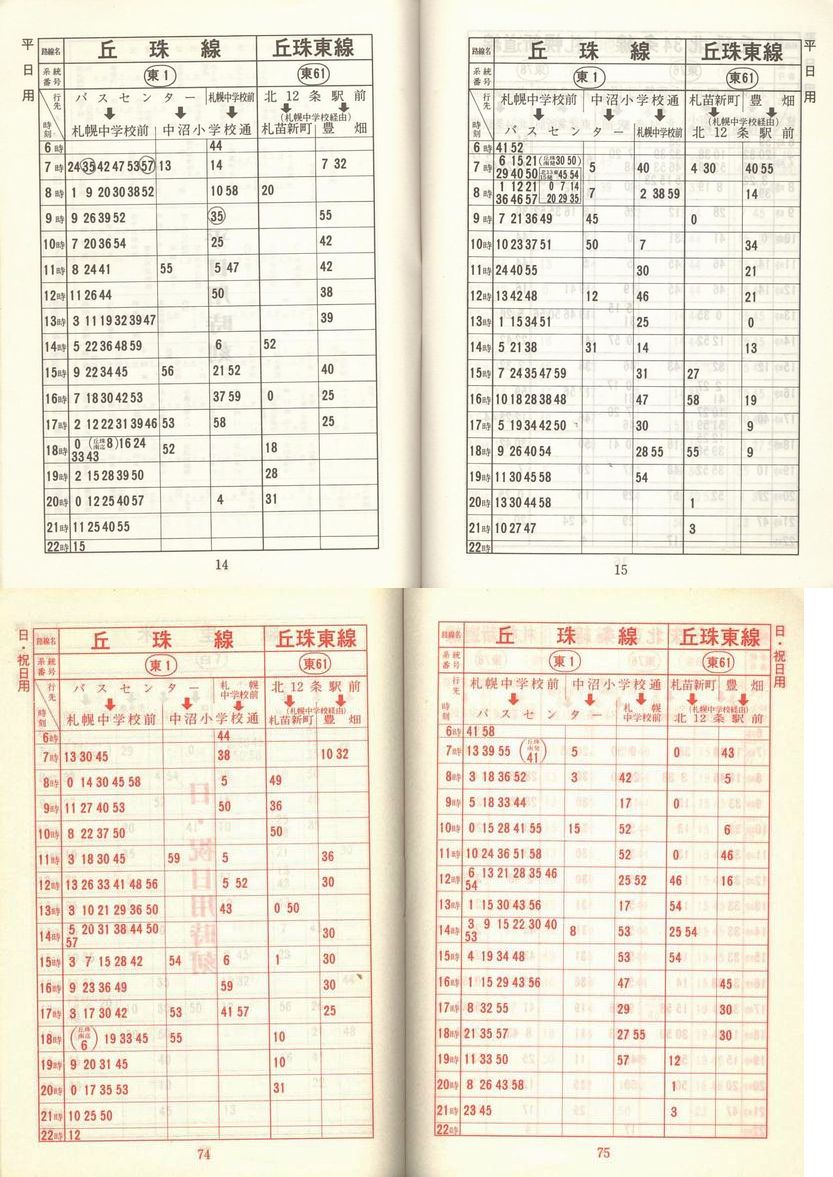 平日用
路線名 丘珠線 丘珠東線
系統番号 東1 東61
行先 時刻 バスセンター 札幌中学校前 北12条駅前
(札幌中学校経由)
札幌中学校前 中沼小学校通 札苗新町 豊畑
6時 44
7時 24 35 42 47 53 57 13 14 7 32
8時 1 9 20 30 38 52 10 58 20
9時 9 26 39 52 35 55
10時 7 20 36 54 25 42
11時 8 24 41 55 5 47 42
12時 11 26 44 50 38
13時 3 11 19 32 39 47 39
14時 5 22 36 48 59 6 52
15時 9 22 34 45 56 21 52 40
16時 7 18 30 42 53 37 59 0 25
17時 2 12 22 31 39 46 53 58 25
18時 0 (丘珠 8) 16 24 52 18
33 43
19時 2 15 28 39 50 28
20時 0 12 25 40 57 4 31
21時 11 25 40 55
22時 15
14
平日用
路線名 丘珠線 丘珠東線
系統番号 東1 東61
行先 時刻 札幌中学校前 中沼小学校通 札苗新町 豊畑
(札幌中学校経由)
バスセンター 札幌中学校前 北12条駅前
6時 41 52
7時 6 15 21 (30 50) 5 40 4 30 40 55
29 40 50 45 54
8時 1 12 21 0 7 14 7 2 38 59 14
36 46 57 20 29 35
9時 7 21 36 49 45 0
10時 10 23 37 51 50 7 34
11時 24 40 55 30 21
12時 13 42 48 12 46 21
13時 1 15 34 51 25 0
14時 5 21 38 31 14 13
15時 7 24 35 47 59 31 27
16時 10 18 28 38 48 47 58 19
17時 5 19 34 42 50 30 9
18時 9 26 40 54 28 55 55 9
19時 11 30 45 58 54
20時 13 30 44 58 1
21時 10 27 47 3
22時
15
日・祝日用
路線名 丘珠線 丘珠東線
系統番号 東1 東61
行先 時刻 バスセンター 札幌中学校前 北12条駅前
(札幌中学校経由)
札幌中学校前 中沼小学校通 札苗新町 豊畑
6時 44
7時 13 30 45 38 10 32
8時 0 14 30 45 58 5 49
9時 11 27 40 53 50 36
10時 8 22 37 50 50
11時 3 18 30 45 59 5 36
12時 13 26 33 41 48 56 5 52 30
13時 3 10 21 29 36 50 43 0 50
14時 5 20 31 38 44 50 30
57
15時 3 7 15 28 42 54 6 1 30
16時 9 23 36 49 59 30
17時 3 17 30 42 53 41 57 25
18時 (丘珠 6) 19 33 45 55 10
19時 9 20 31 45 10
20時 0 17 35 53 31
21時 10 25 50
22時 12
74
日・祝日用
路線名 丘珠線 丘珠東線
系統番号 東1 東61
行先 時刻 札幌中学校前 中沼小学校通 札苗新町 豊畑
(札幌中学校経由)
バスセンター 札幌中学校前 北12条駅前
6時 41 58
7時 13 39 55 (丘珠 41) 5 0 43
8時 3 18 36 52 3 42 5
9時 5 18 33 44 17 0
10時 0 15 28 41 55 15 52 6
11時 10 24 36 51 58 52 0 46
12時 6 13 21 28 35 46 25 52 46 16
54
13時 1 15 30 43 56 17 54
14時 3 9 15 22 30 40 8 53 25 54
53
15時 4 19 34 48 53 54
16時 1 15 29 43 56 47 45
17時 8 32 55 29 30
18時 21 35 57 27 55 30
19時 11 33 50 57 12
20時 8 26 43 58 1
21時 23 45 3
22時
75